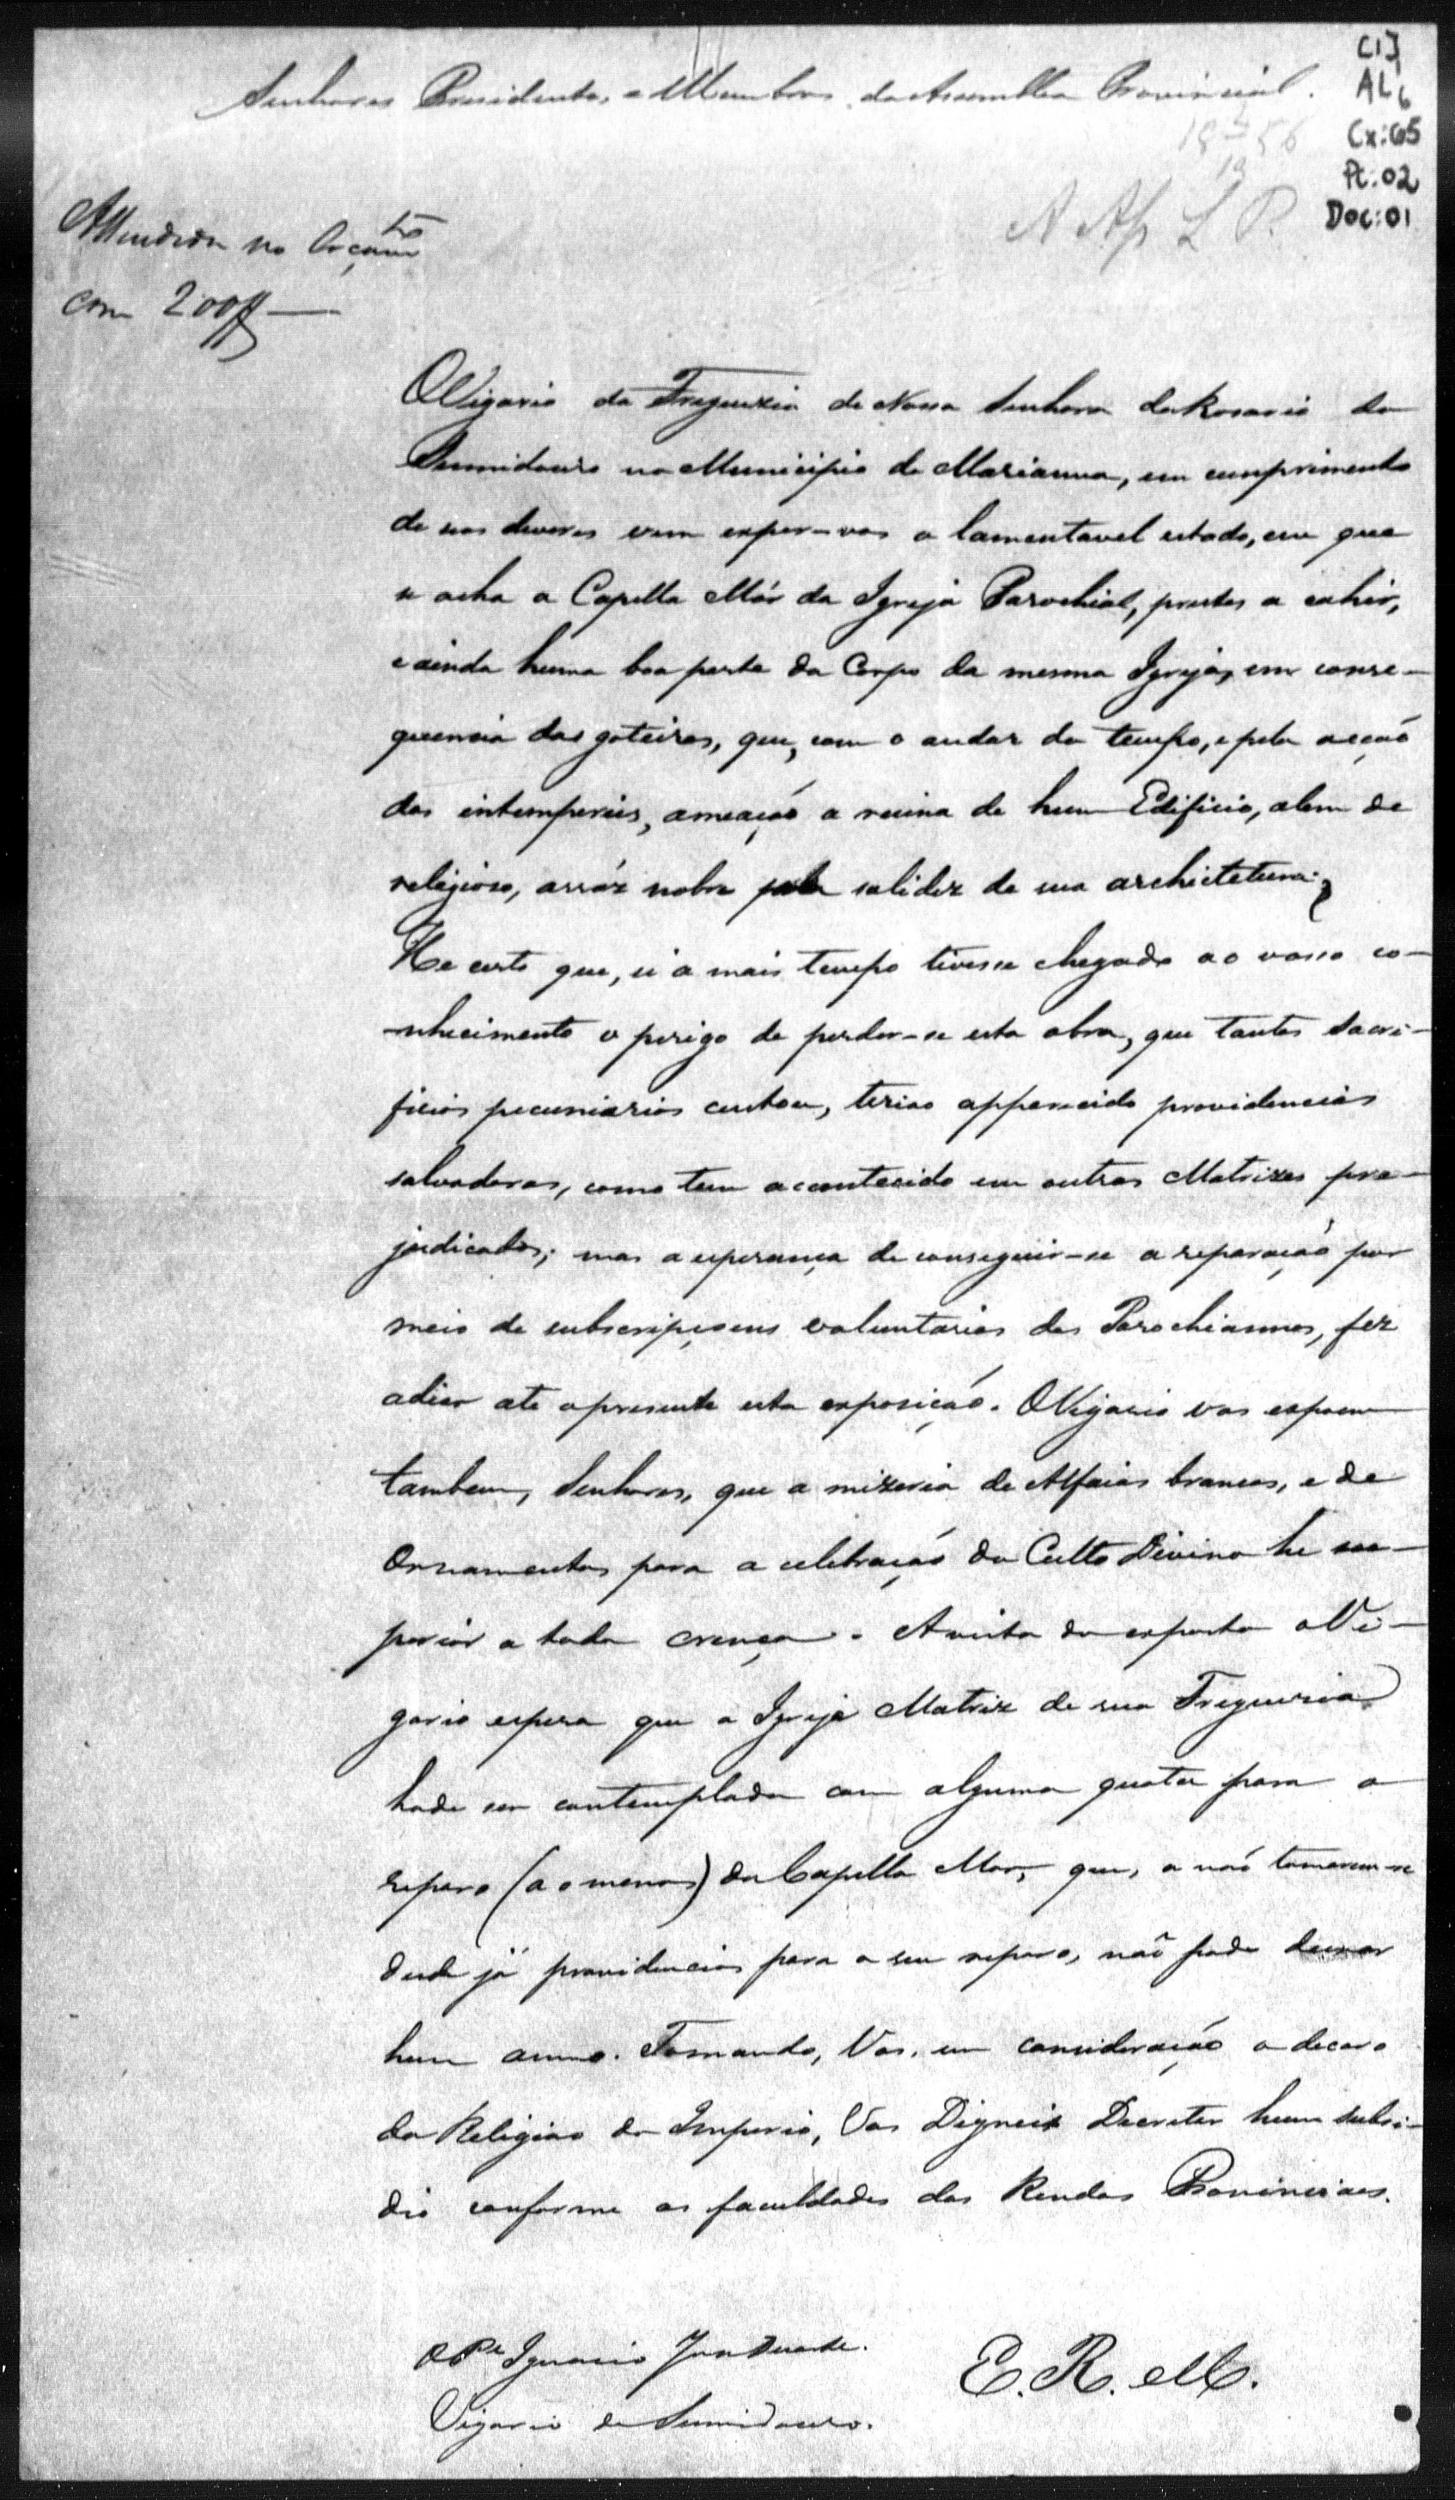 C I J
AL 6
Cx: 65
Pt: 02
Doc: 01
Senhores Presidente, e Membros da Assemblea Provincial.
18 56
A L P.
Attendida no Orçamto
com 200$
O Vigario da Freguezia de Nossa Senhora do Rosario do
Sumidouro no Municipio de Marianna, em cumprimento
de seos deveres vem expor-vos o lamentavel estado, em que
se acha a Capella Mór da Igreja Parochial, prestes a cahir,
e ainda huma boa parte do Corpo da mesma Igreja, em conse-
quencia das goteiras, que, com o andar do tempo, e pela acçaõ
das intemperies, ameaçaõ a ruina de hum Edificio, alem de
religioso, assáz nobre pela solidez de sua architetura.
He certo que, si a mais tempo tivesse chegado ao vosso co-
-nhecimento o perigo de perder-se esta obra, que tantos sacri-
ficios pecuniarios custou, teriao apparecido providencias
salvadoras, como tem acontecido em outras Matrizes pre-
judicadas; mas a esperança de conseguir-se a reparaçaõ por
meio de subscripçoens voluntarias dos Parochiannos, fez
adiar até o presente esta exposiçaõ. O Vigario vos expoem
tambem, Senhores, que a mizeria de Alfaias brancas, e de
Ornamentos para a celebraçaõ do Culto Divino he su-
perior a toda crença. A vista do exposto o Vi-
gario espera que a Igreja Matriz de sua Freguezia
hade ser contemplada com alguma quota para o
reparo (ao menos) da Capella Mor, que, a naõ tomarem-se
desde já providencias para o seu reparo, naõ pode durar
hum anno. Tomando, Vos, em consideraçaõ o decoro
da Religiao do Imperio, Vos Digneis Decretar hum subsi-
dio conforme as faculdades das Rendas Provinciaes.
E. R. M.
O Pe Ignacio José Duarte.
Vigario do Sumidouro.